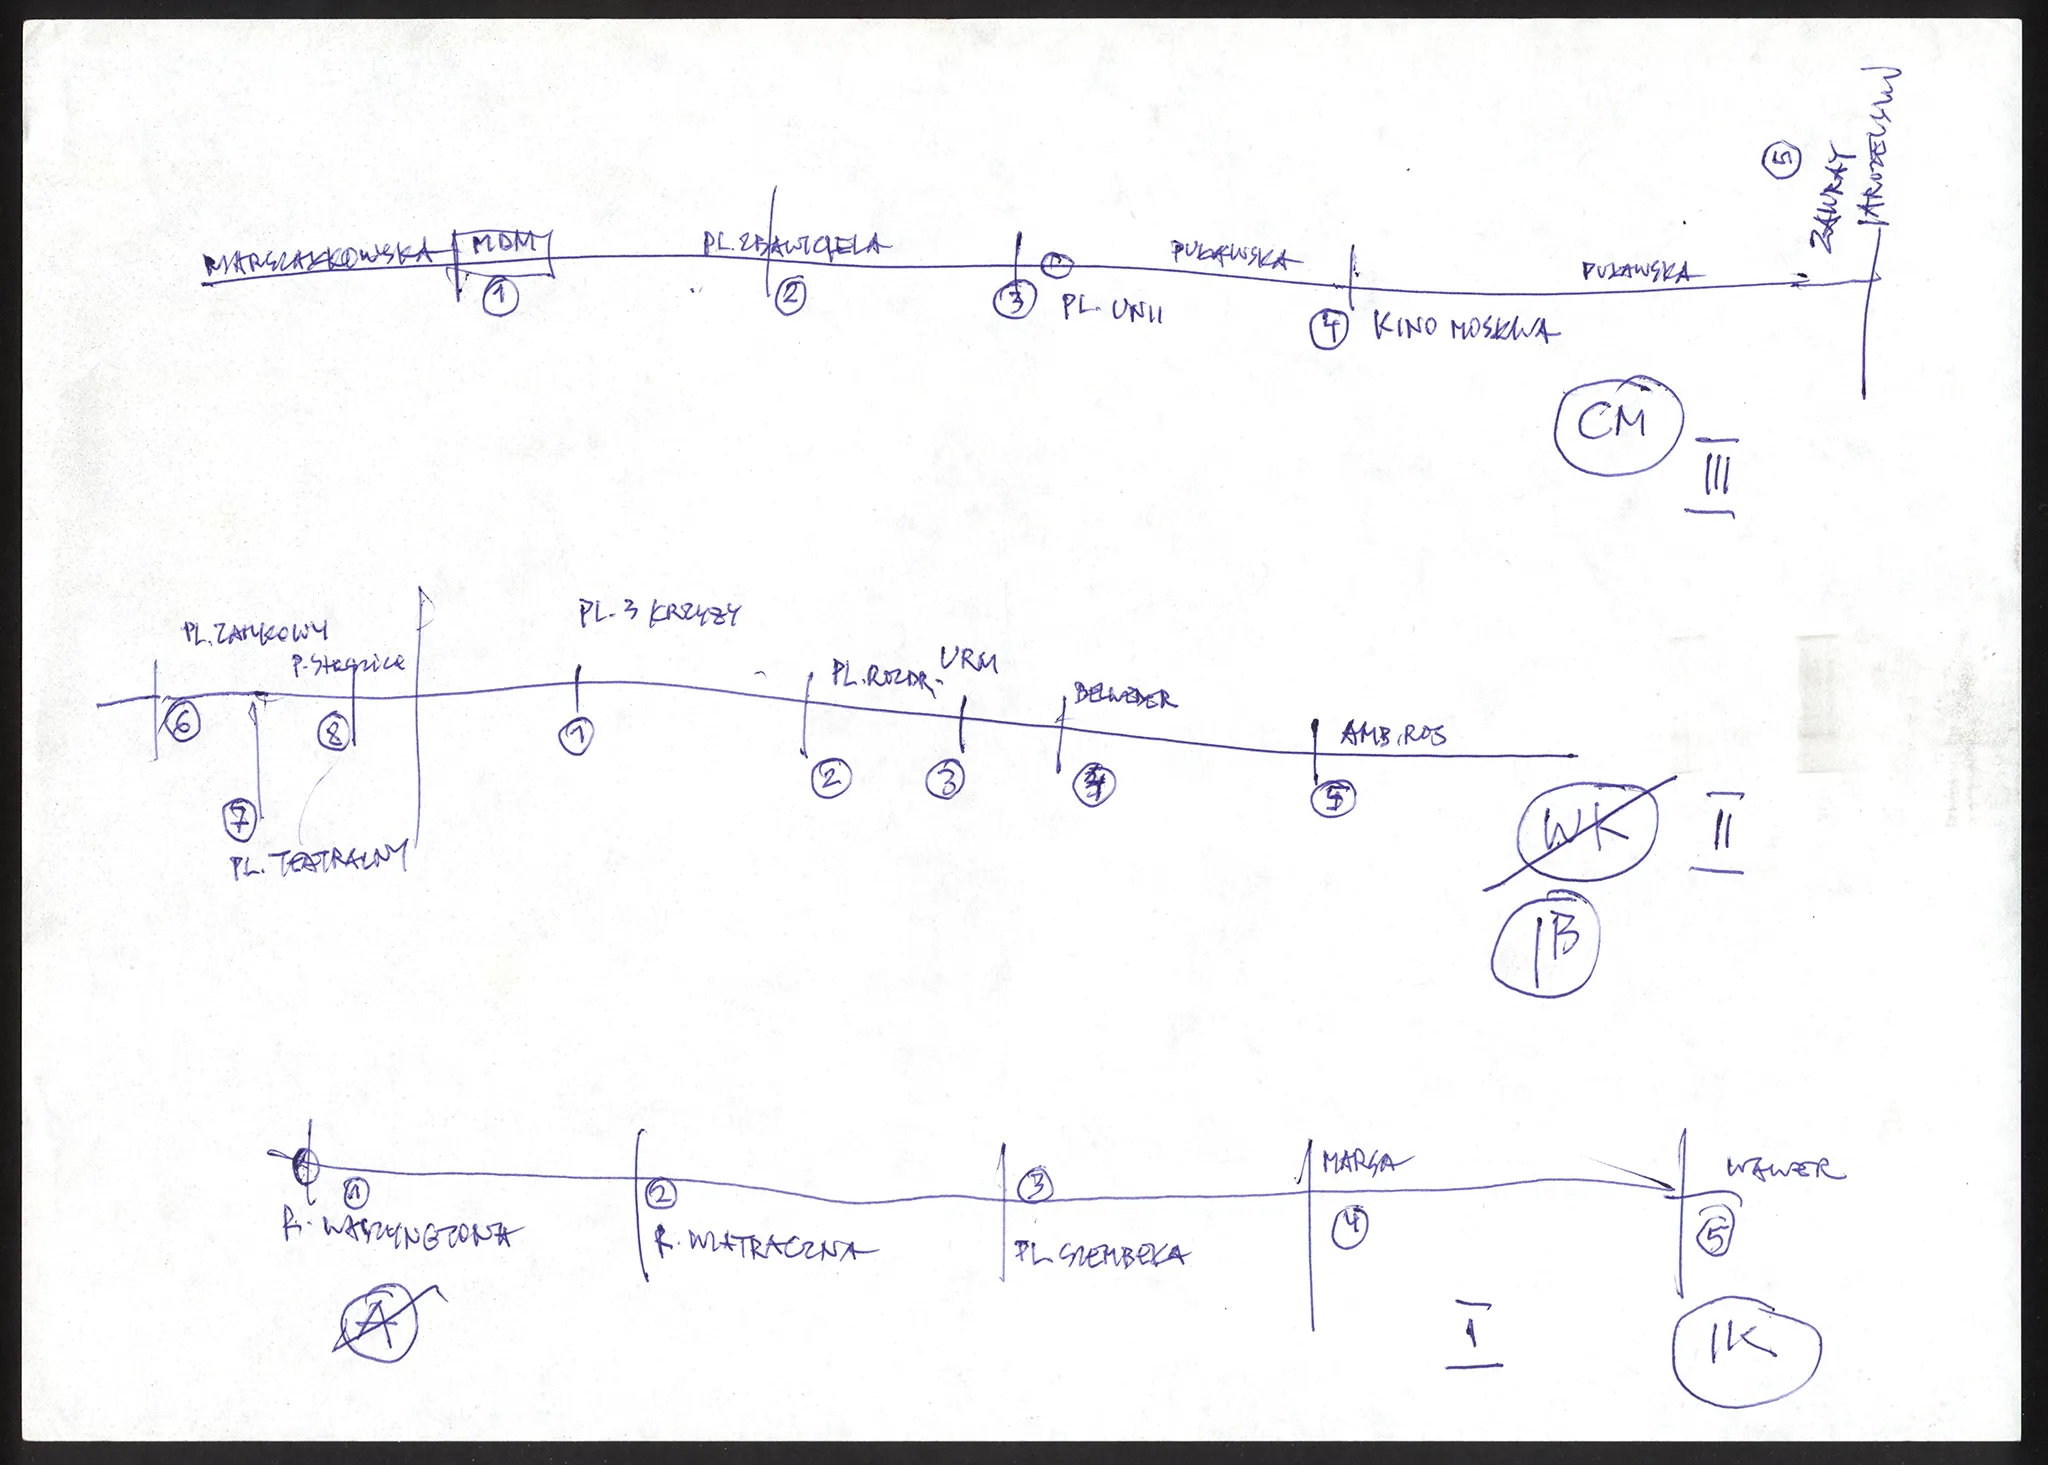 MARSZAŁKOWSKA MDM PL. ZBAWICIELA PUŁAWSKA PUŁAWSKA
1 2 3 PL. UNII 4 KINO MOSKWA
5
CM
III
PL. ZAMKOWY PL. 3 KRZYŻY
PL. ROZDR. URM BELWEDER AMB. ROS
6 8 1 2 3 4 5
7
PL. TEATRALNY
WK II
IB
MARSA WAWER
1 2 3 4 5
R. WASZYNGTONA R. WIATRACZNA PL. SZEMBEKA
A I IK